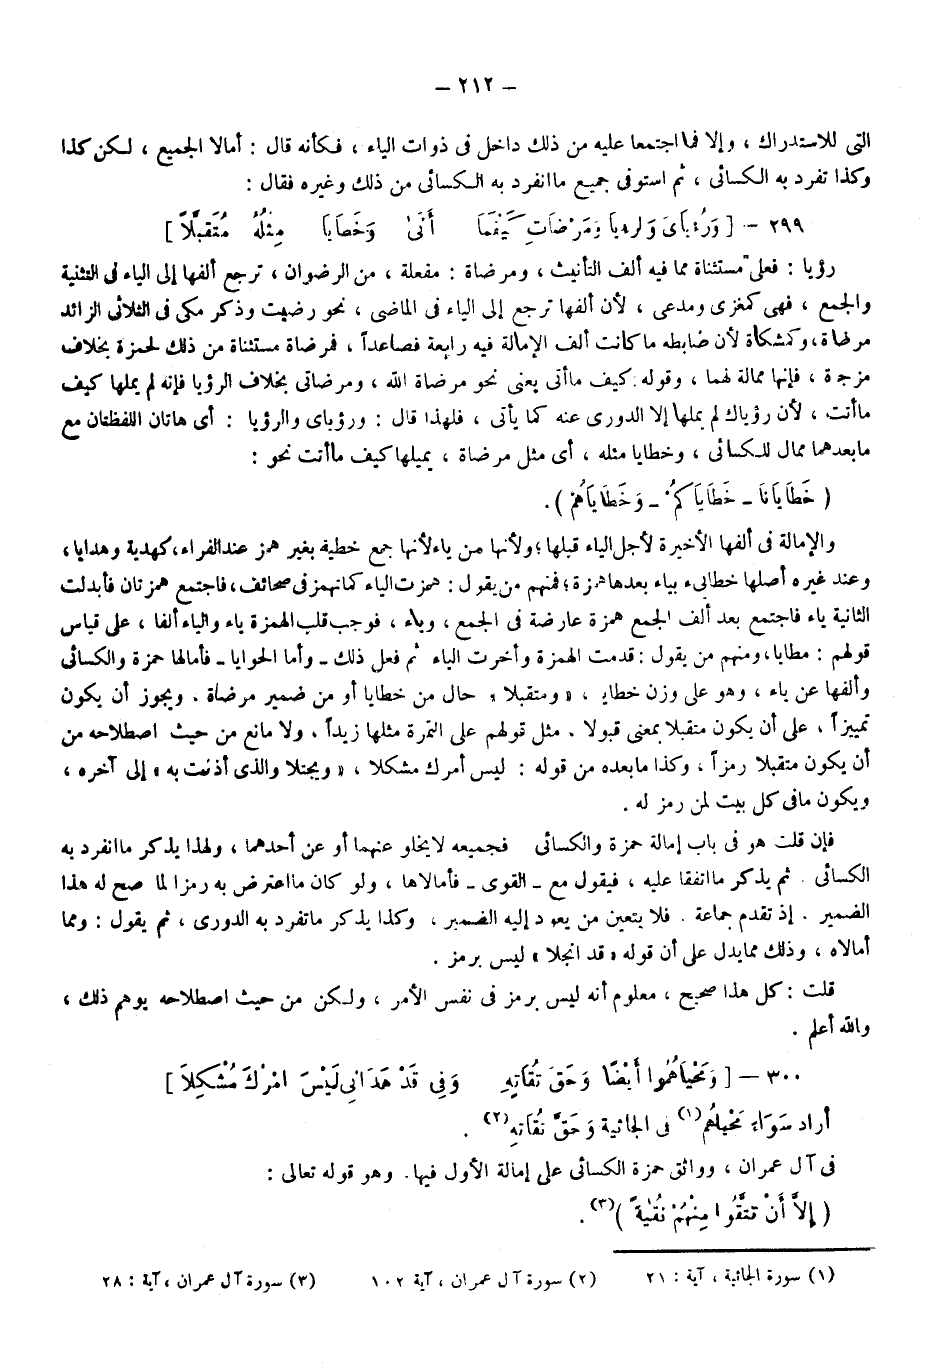 – ٢١٢ –
التى للاستدراك ، وإلا فما اجتمعا عليه من ذلك داخل فى ذوات الياء ، فكأنه قال : أمالا الجميع ، لكن كذا
وكذا تفرد به الكسائى ، ثم استوفى جميع ماانفرد به الكسائى من ذلك وغيره فقال :
٢٩٩ – [ وَرُءْيَاىَ وَالرءيا وَمَرْضَاتِ كَيْفَمَا أَتَىٰ وَخَطَايَا مِثْلُهُ مُتَقَبَّلَاً ]
رؤيا : فعلى مستثناة مما فيه ألف التأنيث ، ومرضاة : مفعلة ، من الرضوان ، ترجع ألفها إلى الياء فى التثنية
والجمع ، فهى كمغزى ومدعى ، لأن ألفها ترجع إلى الياء فى الماضى ، نحو رضيت وذكر مكى فى الثلاثى الزائد
مرضاة ، وكمشكاة لأن ضابطه ماكانت ألف الإمالة فيه رابعة فصاعداً ، فمرضاة مستثناة من ذلك لحمزة بخلاف
مزجة ، فإنها ممالة لهما ، وقوله : كيف ماأتى يعنى نحو مرضاة الله ، ومرضاتى بخلاف الرؤيا فإنه لم يملها كيف
ماأتت ، لأن رؤياك لم يملها إلا الدورى عنه كما يأتى ، فلهذا قال : ورؤياى والرؤيا : أى هاتان اللفظتان مع
مابعدهما ممال للكسائى ، وخطايا مثله ، أى مثل مرضاة ، يميلها كيف ماأتت نحو :
( خَطَايَانَا – خَطَايَاكُمْ – وَخَطَايَاهُمْ ) .
والإمالة فى ألفها الأخيرة لأجل الياء قبلها ؛ ولأنها من ياء لأنها جمع خطية بغير همز عند الفراء ، كهدية وهدايا ،
وعند غيره أصلها خطايىء بياء بعدها همزة ؛ فمنهم من يقول : همزت الياء كما تهمز فى صحائف ، فاجتمع همزتان فأبدلت
الثانية ياء فاجتمع بعد ألف الجمع همزة عارضة فى الجمع ، وياء ، فوجب قلب الهمزة ياء والياء ألفا ، على قياس
قولهم : مطايا ، ومنهم من يقول : قدمت الهمزة وأخرت الياء ثم فعل ذلك – وأما الحوايا – فأمالها حمزة والكسائى
وألفها عن ياء ، وهو على وزن خطايا ، « ومتقبلا » حال من خطايا أو من ضمير مرضاة . ويجوز أن يكون
تمييزاً ، على أن يكون متقبلا بمعنى قبولا . مثل قولهم على التمرة مثلها زبداً . ولا مانع من حيث اصطلاحه من
أن يكون متقبلا رمزاً ، وكذا مابعده من قوله : ليس أمرك مشكلا ، « ويجتلا والذى أذنت به » إلى آخره ،
ويكون مافى كل بيت لمن رمز له .
فإن قلت هو فى باب إمالة حمزة والكسائى فجميعه لايخلو عنهما أو عن أحدهما ، ولهذا يذكر ماانفرد به
الكسائى . ثم يذكر مااتفقا عليه ، فيقول مع – القوى – فأمالاها ، ولو كان مااعترض به رمزا لما صح له هذا
الضمير . إذ تقدم جماعة . فلا يتعين من يعود إليه الضمير ، وكذا يذكر ماتفرد به الدورى ، ثم يقول : ومما
أمالاه ، وذلك ممايدل على أن قوله « قد انجلا » ليس برمز .
قلت : كل هذا صحيح ، معلوم أنه ليس برمز فى نفس الأمر ، ولكن من حيث اصطلاحه يوهم ذلك ،
والله أعلم .
٣٠٠ – [ وَمَحْيَاهُمُوا أَيْضًا وَحَقَّ تُقَاتِهِ وَفِى قَدْ هَدَانِى لَيْسَ امْرُكَ مُشْكِلَا ]
أراد سَوَاءً مَحْيَاهُم (١) فى الجاثية وَحَقَّ تُقَاتِهِ (٢) .
فى آل عمران ، ووافق حمزة الكسائى على إمالة الأول فيها . وهو قوله تعالى :
( إِلاَّ أَنْ تَتَّقُوا مِنْهُمْ تُقَيةً ) (٣) .
(١) سورة الجاثية ، آية : ٢١ (٢) سورة آل عمران ، آية ١٠٢ (٣) سورة آل عمران ، آية : ٢٨